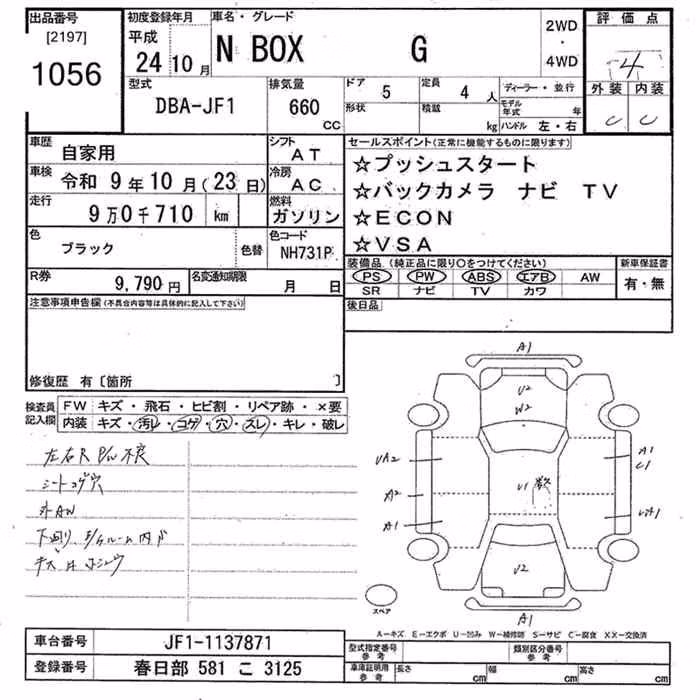 出品番号
[2197]
1056
初度登録年月
平成
24 10 月
車名・グレード
N BOX G
2WD
・
4WD
評価点
4
外装 内装
C C
型式
DBA-JF1
排気量
660
CC
ドア 5
定員 4 人
形状
積載 kg
ディーラー・並行
モデル年式 年
ハンドル 左・右
車歴
自家用
シフト
AT
車検
令和 9年10月(23日)
冷房
AC
走行
9万0千710 km
燃料
ガソリン
色
ブラック
色替
色コード
NH731P
R券
9,790円
名変通知期限
月 日
セールスポイント(正常に機能するものに限ります)
☆プッシュスタート
☆バックカメラ ナビ TV
☆ECON
☆VSA
装備品(純正品に限り○をつけてください)
PS PW ABS エアB AW
SR ナビ TV カワ
新車保証書
有・無
後日品
注意事項申告欄(不具合内容等は具体的に記入して下さい)
修復歴 有〔箇所 〕
検査員記入欄
FW キズ・飛石・ヒビ割・リペア跡・×要
内装 キズ・汚レ・コゲ・穴・ズレ・キレ・破レ
左右R P/W 不良
シートコゲ穴
外AW
A1
U2
W2
UA2
A1
C1
A2
U1
数
A1
U2
A1
スペア
A―キズ E―エクボ U―凹み W―補修跡 S―サビ C―腐食 XX―交換済
車台番号
JF1-1137871
登録番号
春日部 581 こ 3125
型式指定番号
参考
類別区分番号
参考
車庫証明用
参考
長さ cm
幅 cm
高さ cm